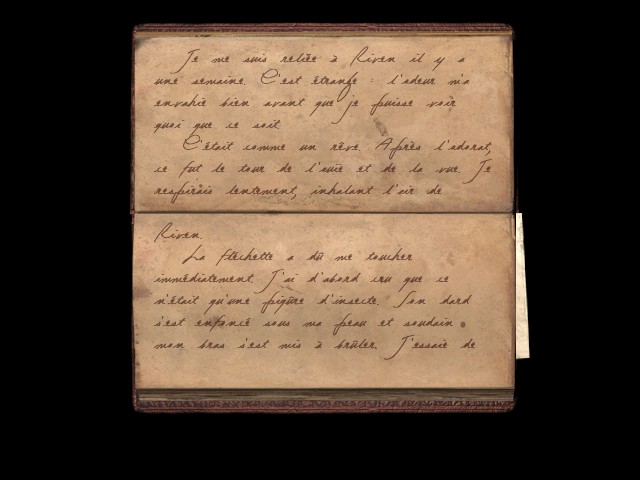 Je me suis reliée à Riven il y a
une semaine. C'est étrange : l'odeur m'a
envahie bien avant que je puisse voir
quoi que ce soit.
C'était comme un rêve. Après l'odorat,
ce fut le tour de l'ouïe et de la vue. Je
respirais lentement, inhalant l'air de
Riven.
La fléchette a dû me toucher
immédiatement. J'ai d'abord cru que ce
n'était qu'une piqûre d'insecte. Son dard
s'est enfoncé sous ma peau et soudain
mon bras s'est mis à brûler. J'essaie de